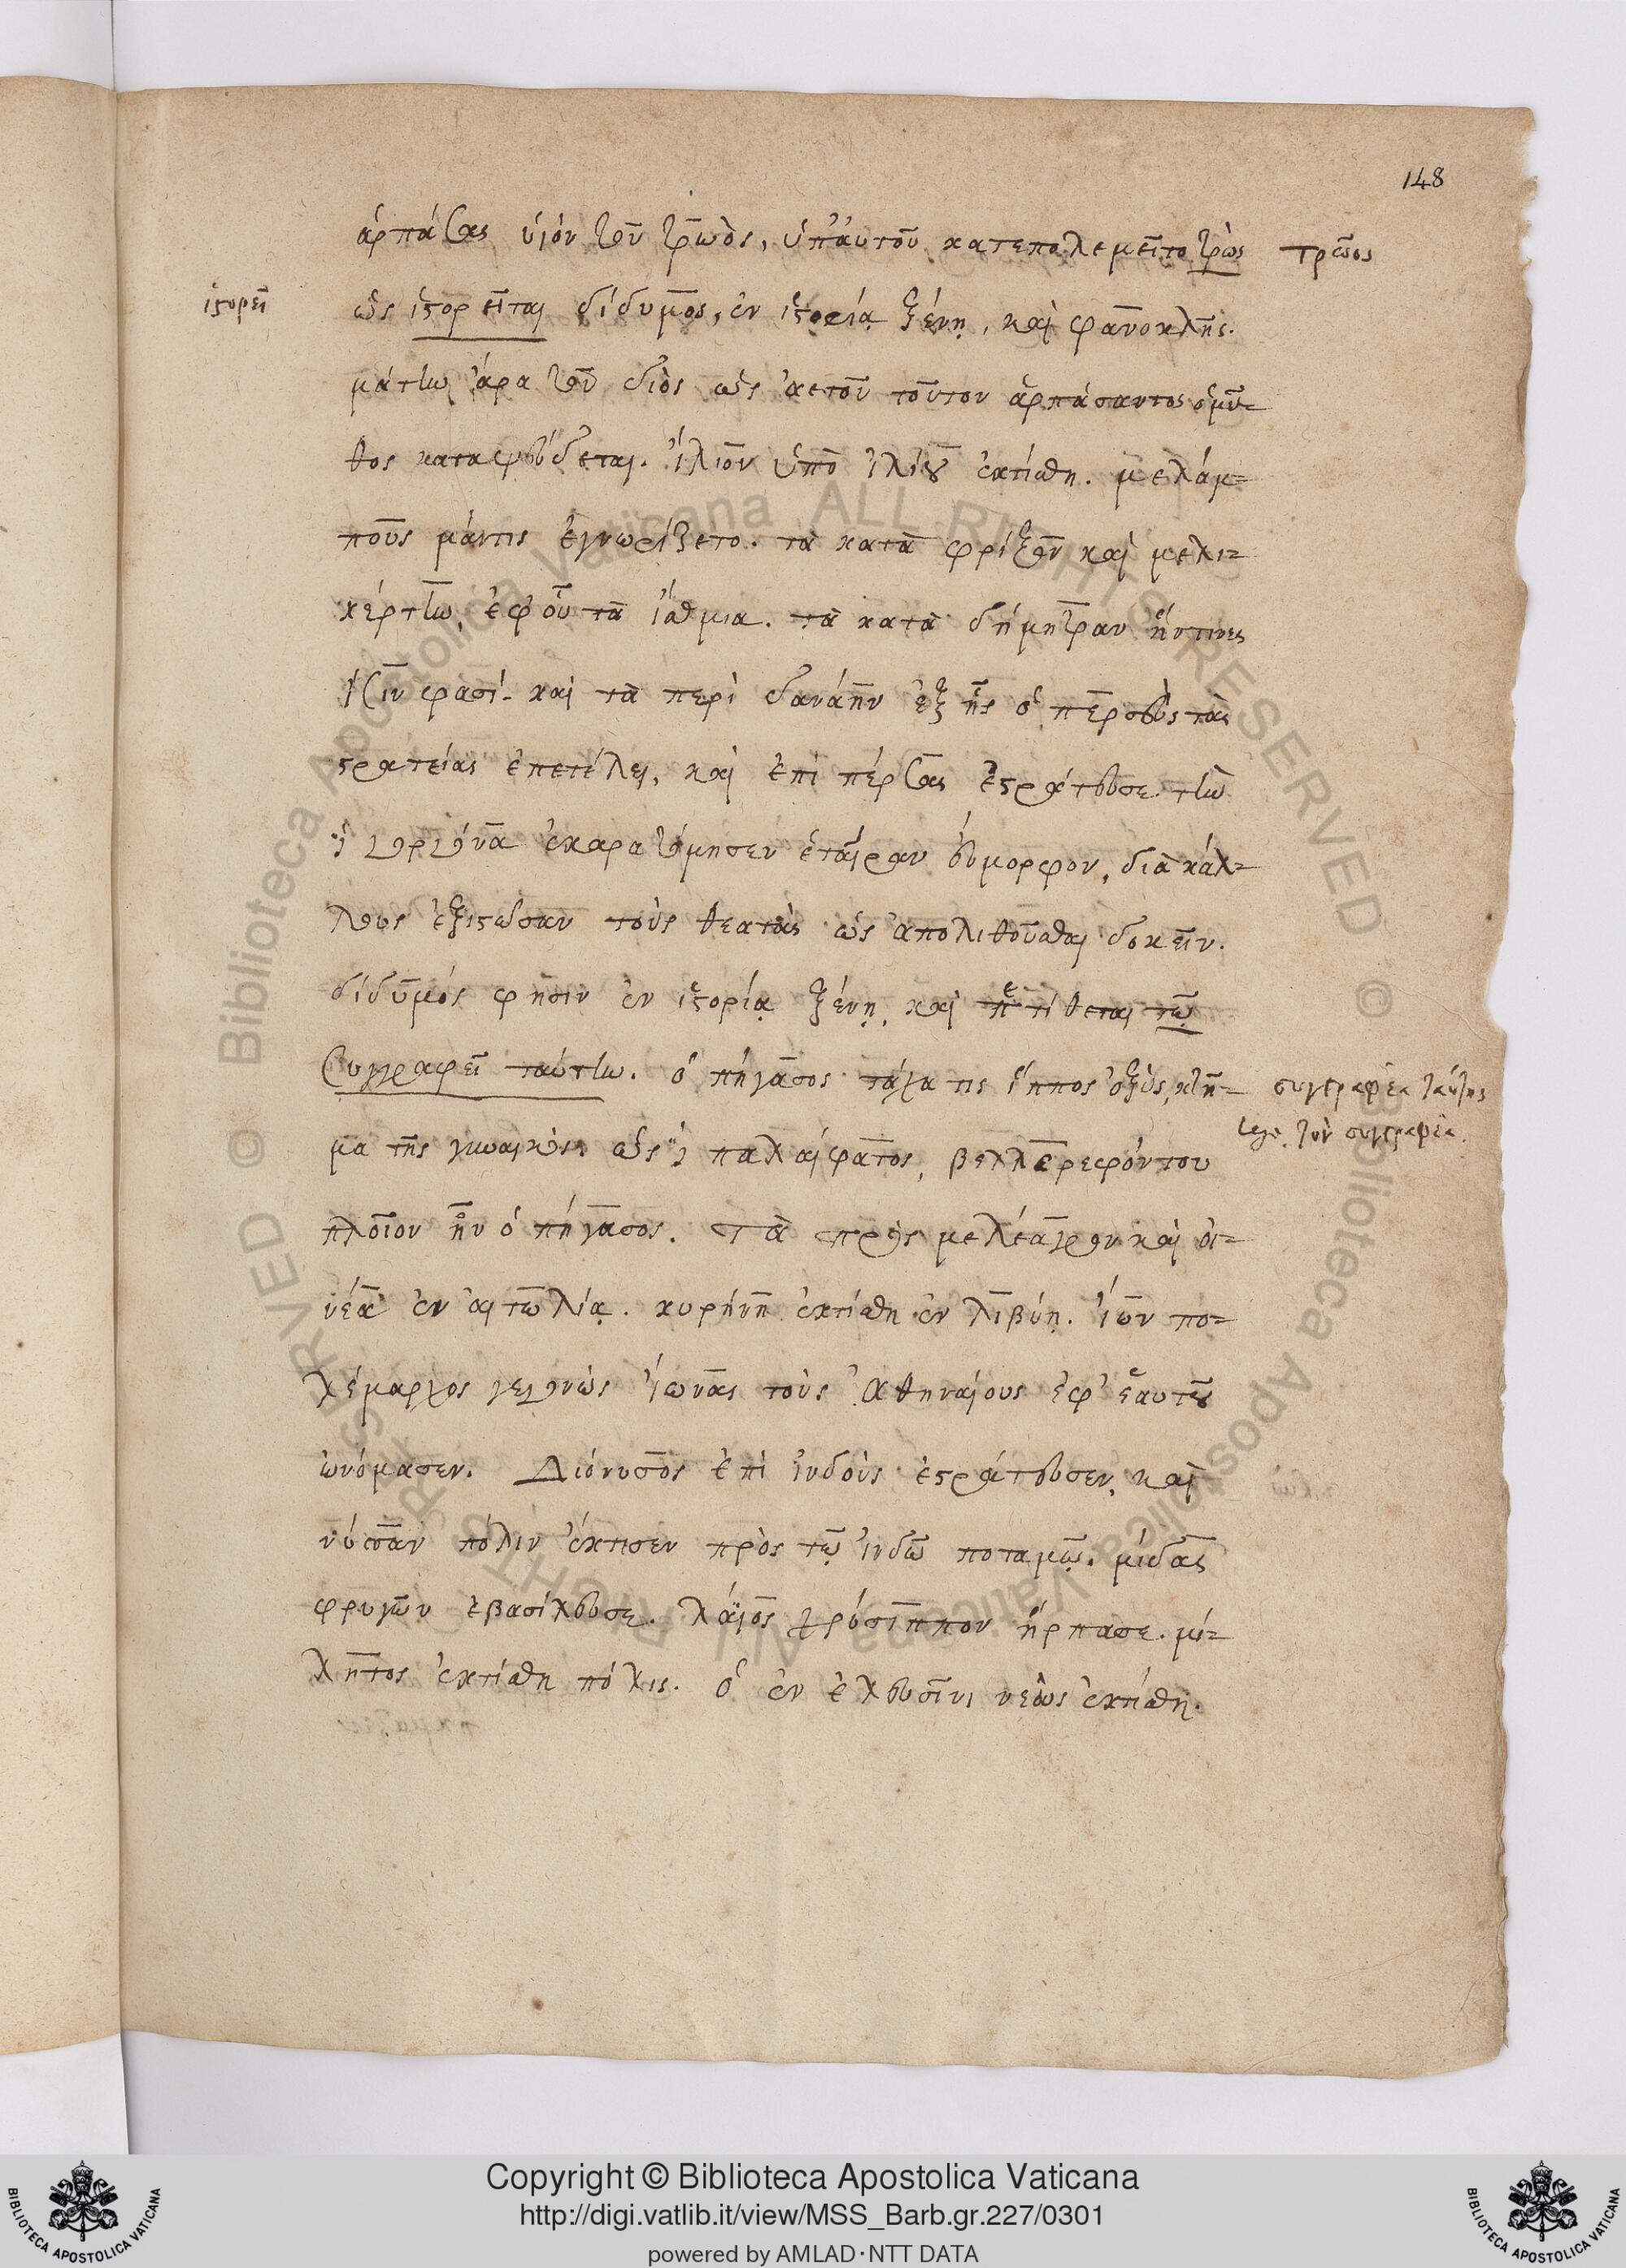 148
ἁρπάσας υἱόν τοῦ τρωὸς, ὑπ' αὐτοῦ κατεπολεμεῖτο τρὼς
τρῶος
ἱστορεῖ
ὡς ἱστορεῖται δίδυμος, ἐν ἱστορίᾳ ξένῃ, καὶ φανοκλῆς.
μάτην ἄρα τοῦ διὸς ὡς ἀετοῦ τοῦτον ἁρπάσαντος ὁ μῦ-
θος καταψεύδεται. ἴλιον ὑπὸ ἰλίου ἐκτίσθη. μελάμ-
πους μάντις ἐγνωρίζετο. τὰ κατὰ φρίξον καὶ μελι-
κέρτην, ἐφ' οὗ τὰ ἴσθμια. τὰ κατὰ δήμητραν ἥντινες
ἶσιν φασί. καὶ τὰ περὶ δανάην ἐξ ἧς ὁ περσεὺς τὰς
στρατείας ἐπετέλει, καὶ ἐπὶ πέρσας ἐστράτευσε τὴν
γοργόνα ἐκαρατόμησεν ἑταίραν εὔμορφον, διὰ κάλ-
λους ἐξιστῶσαν τοὺς θεατὰς ὡς ἀπολιθοῦσθαι δοκεῖν.
δίδυμός φησιν ἐν ἱστορίᾳ ξένῃ, καὶ π τίθεται τῷ
συγγραφεῖ ταύτην. ὁ πήγασος τάχα τις ἵππος ὀξὺς, κτῆ-
συγγραφέα ταύτης
lege. τὸν συγγραφέα.
μα τῆς γυναικὸς ὡς παλαίφατος, βελλερεφόντου
πλοῖον ἦν ὁ πήγασος. Τὰ πρὸς μελέαγρον καὶ οἰ-
νέα ἐν αἰτωλίᾳ. κυρήνη ἐκτίσθη ἐν λιβύῃ. ἴων πο-
λέμαρχος γεγονὼς ἴωνας τοὺς Ἀθηναίους ἐφ' ἑαυτοῦ
ὠνόμασεν. Διόνυσος ἐπὶ ἰνδοὺς ἐστράτευσεν, καὶ
νύσσαν πόλιν ἔκτισεν πρὸς τῷ ἰνδῷ ποταμῷ. μίδας
φρυγῶν ἐβασίλευσε. λάϊος χρύσιππον ἥρπασε. μί-
λητος ἐκτίσθη πόλις. ὁ ἐν ἐλευσῖνι νεὼς ἐκτίσθη.
Copyright © Biblioteca Apostolica Vaticana
http://digi.vatlib.it/view/MSS_Barb.gr.227/0301
powered by AMLAD·NTT DATA
BIBLIOTECA APOSTOLICA VATICANA
BIBLIOTECA APOSTOLICA VATICANA